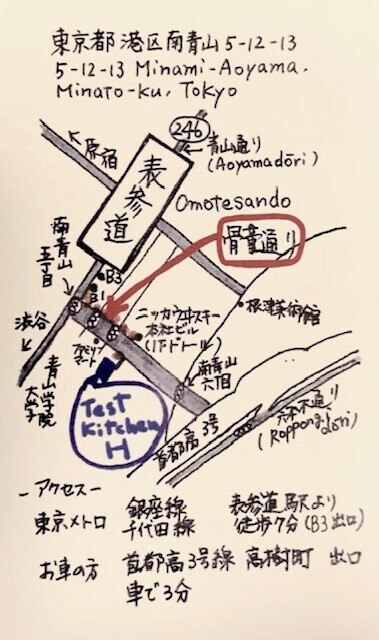 東京都港区南青山5-12-13
5-12-13 Minami-Aoyama.
Minato-ku, Tokyo
246
原宿
青山通り
(Aoyamadōri)
表参道
Omotesando
骨董通り
南青山
五丁目
B3
B1
ニッカウヰスキー
本社ビル
(1Fドトール)
根津美術館
渋谷
青山学院
大学
南青山
六丁目
Test
Kitchen
H
首都高3号
六本木通り
(Roppongidōri)
-アクセス-
東京メトロ 銀座線 表参道駅より
千代田線 徒歩7分(B3出口)
お車の方 首都高3号線 高樹町 出口
車で3分